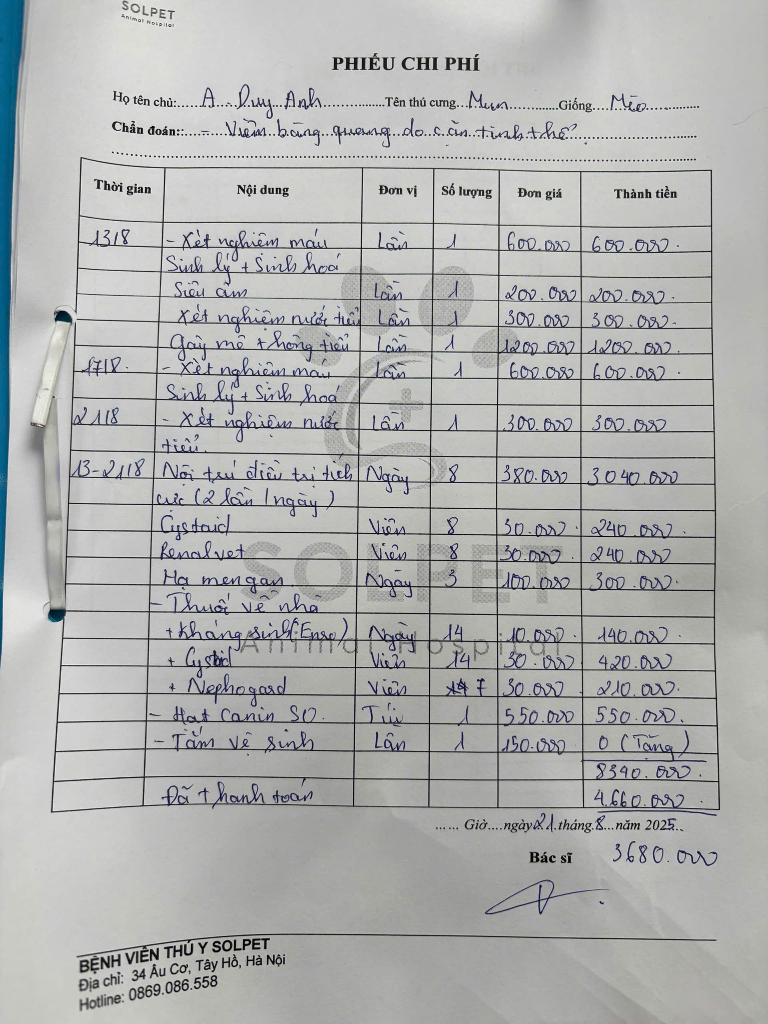 SOLPET
Animal Hospital
PHIẾU CHI PHÍ
Họ tên chủ: A. Duy Anh Tên thú cưng Mun Giống Mèo
Chẩn đoán:: - Viêm bàng quang do cặn tinh thể
Thời gian Nội dung Đơn vị Số lượng Đơn giá Thành tiền
13/8 - Xét nghiệm máu Lần 1 600.000 600.000
Sinh lý + Sinh hoá
Siêu âm Lần 1 200.000 200.000
Xét nghiệm nước tiểu Lần 1 300.000 300.000
Gây mê + thông tiểu Lần 1 1200.000 1200.000
17/8 - Xét nghiệm máu Lần 1 600.000 600.000
Sinh lý + Sinh hoá
21/8 - Xét nghiệm nước Lần 1 300.000 300.000
tiểu.
13-21/8 Nội trú điều trị tích Ngày 8 380.000 3040.000
cực (2 lần / ngày)
Cystaid Viên 8 30.000 240.000
Renalvet Viên 8 30.000 240.000
Hạ mengan Ngày 3 100.000 300.000
- Thuốc về nhà
+ Kháng sinh (Enro) Ngày 14 10.000 140.000
+ Cystaid Viên 14 30.000 420.000
+ Nephogard Viên 7 30.000 210.000
- Hạt Canin SO. Túi 1 550.000 550.000
- Tắm vệ sinh Lần 1 150.000 0 (Tặng)
8340.000
Đã thanh toán 4.660.000
...... Giờ....ngày 21 tháng 8 năm 2025
Bác sĩ 3680.000
SOLPET
Animal Hospital
BỆNH VIỆN THÚ Y SOLPET
Địa chỉ: 34 Âu Cơ, Tây Hồ, Hà Nội
Hotline: 0869.086.558